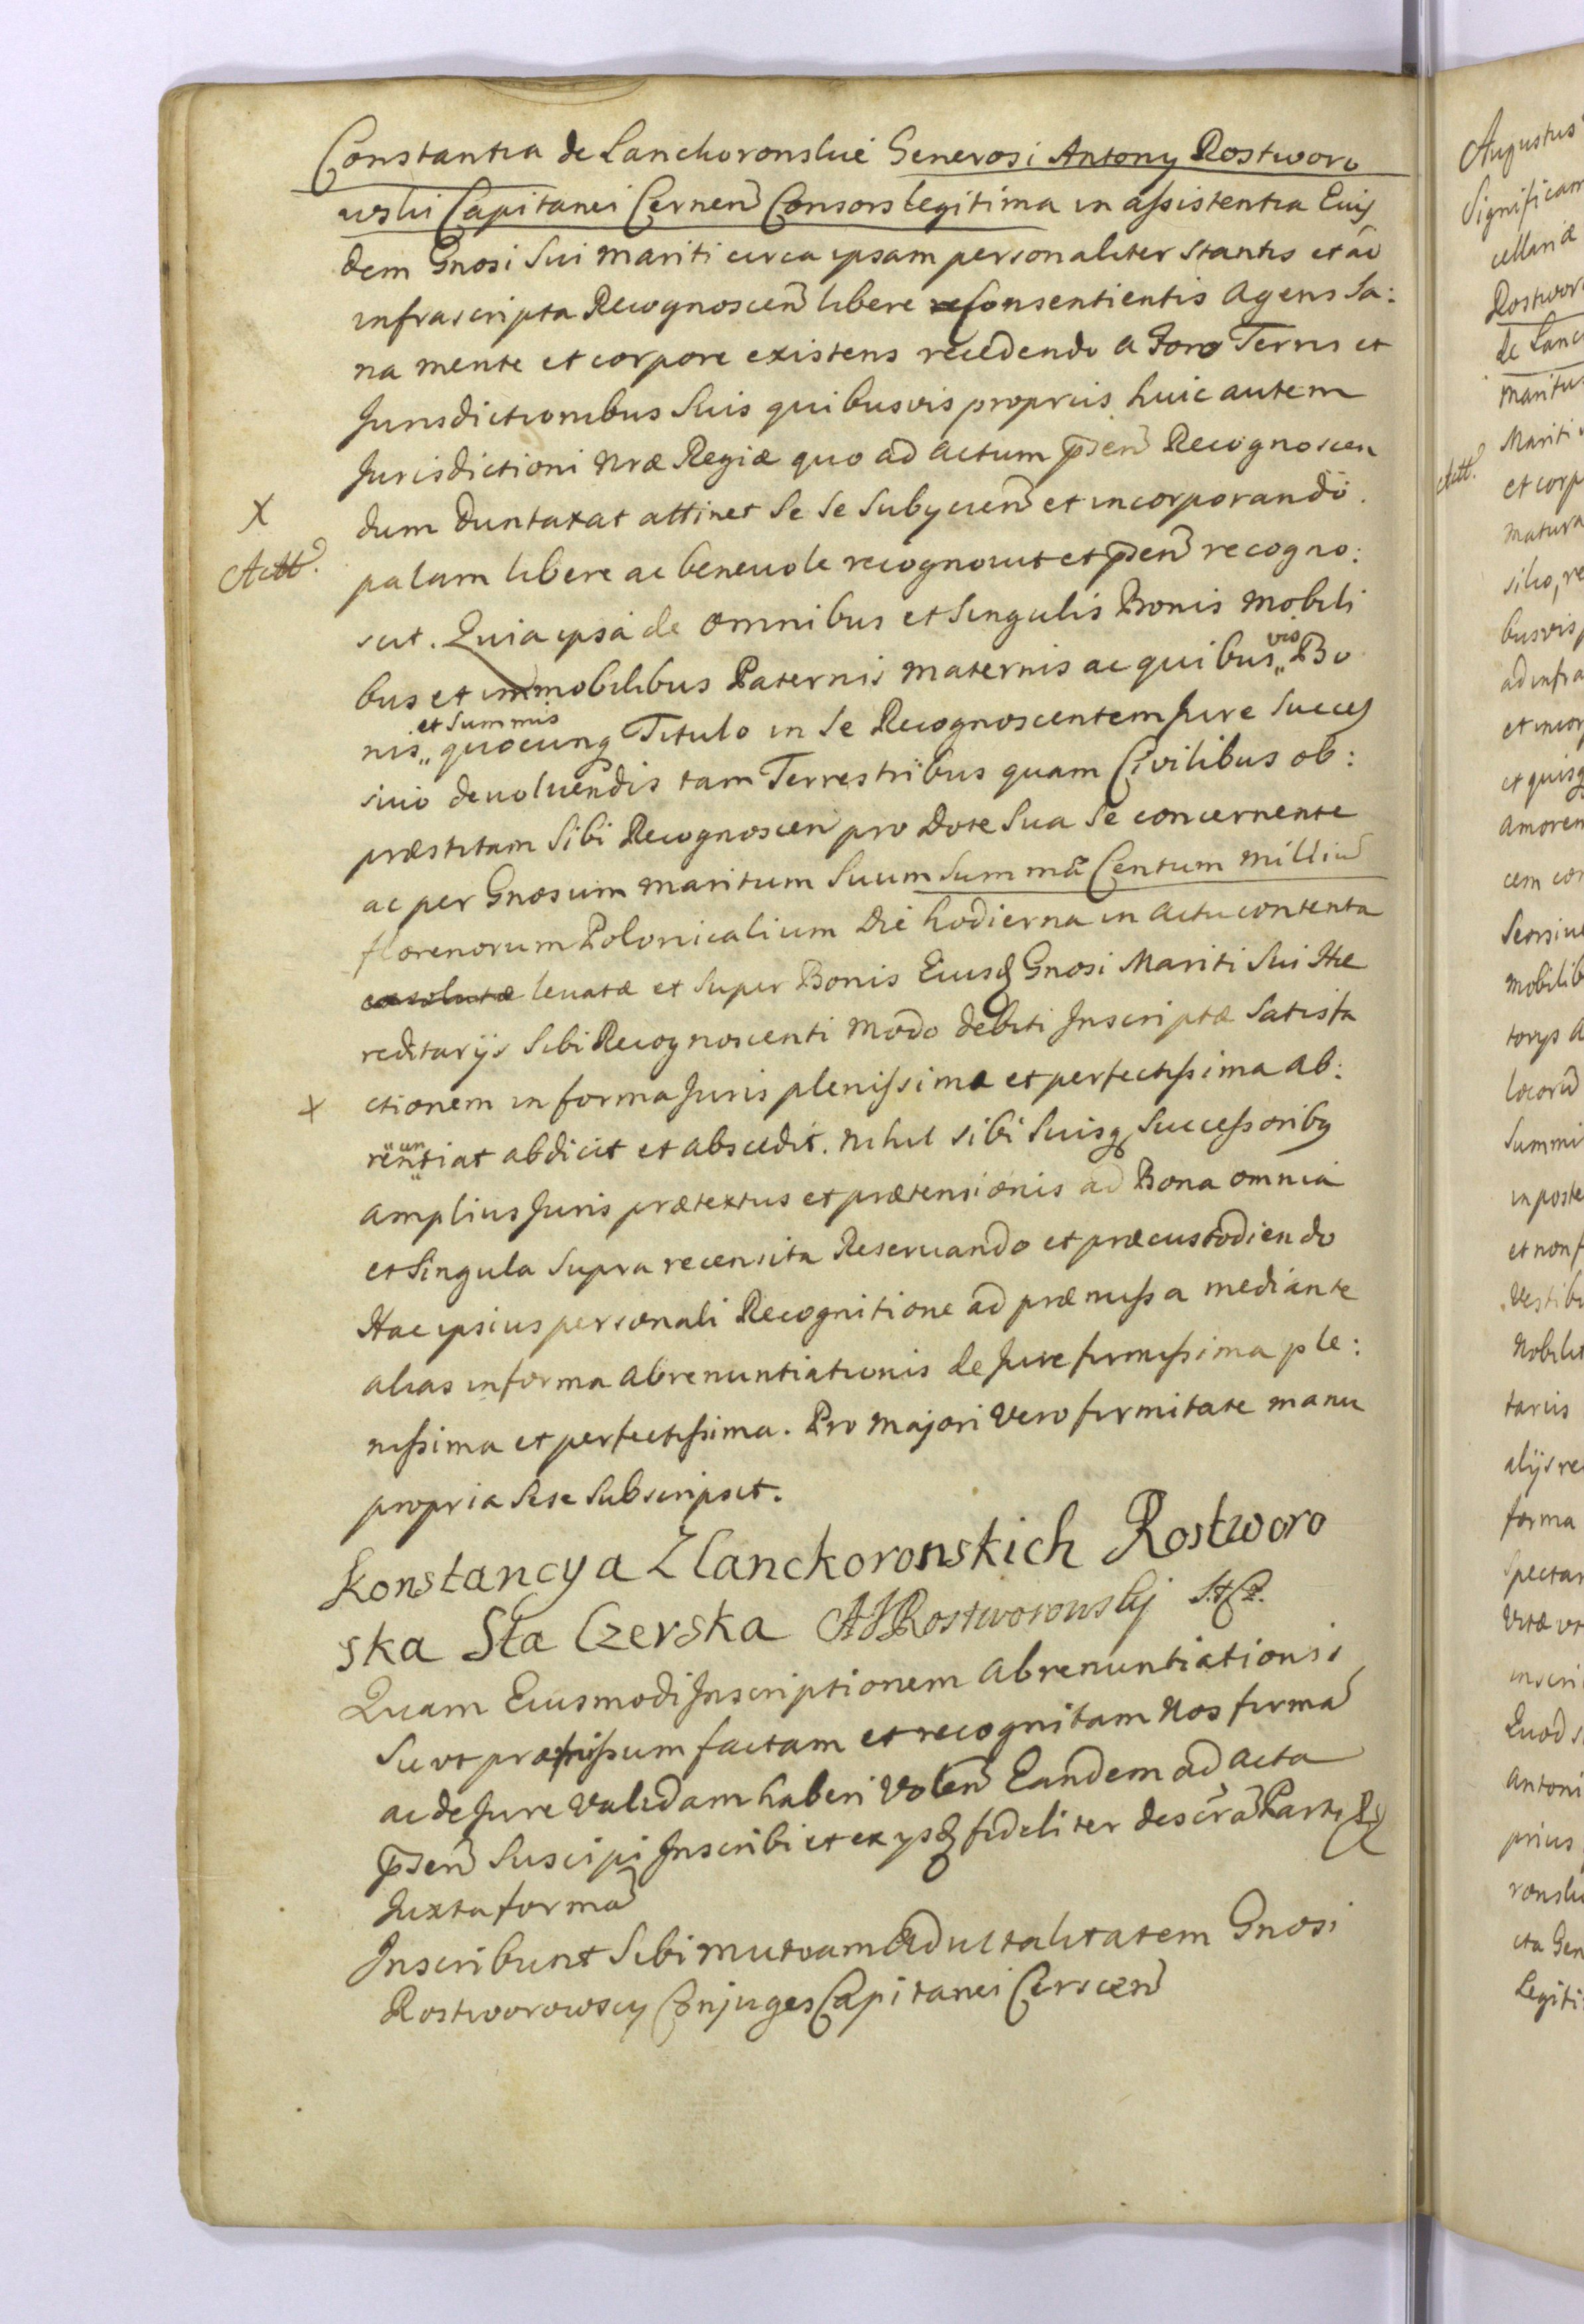 Constantia de Lanckoronskie Generosi Antony Rostworo
wski Capitanei Cernen Consors legitima in assistentia Eius
dem Gnosi Sui mariti circa ipsam personaliter stantis et ad
infrascripta Recognoscen libere consentientis Agens Sa:
na mente et corpore existens recedendo a Foro Terris et
Jurisdictionibus Suis quibusvis proprijs huic autem
Jurisdictioni Nræ Regiæ quo ad Actum psen Recognoscen
X
dum duntaxat attinet Se Se Subycien et incorporando.
Actt.
palam libere ac beneuole recognouit et psen recogno:
scit. Quia ipsa de omnibus et Singulis Bonis mobili
bus et immobilibus Paternis maternis ac quibus vis Bo
nis et Summis quocunq Titulo in Se Recognoscentem Jure Succes
siuo deuoluendis tam Terrestribus quam Civilibus ob:
præstitam Sibi Recognoscen pro Dote Sua Se concernente
ac per Gnosum maritum Suum Summa Centum milliu
florenorum Polonicalium Die hodierna in Actu contenta
exsolutæ leuatæ et Super Bonis Eiusd Gnosi Mariti Sui Hæ
reditarijs Sibi Recognoscenti modo debiti Inscriptæ Satisfa
X
ctionem in forma Juris plenissima et perfectissima ab:
renuntiat abdicit et abscedit. Nihil sibi Suisq Successoribq
amplius Juris prætextus et prætensionis ad Bona omnia
et Singula Supra recensita Reseruando et præcustodiendo
Hac ipsius personali Recognitione ad præmissa mediante
alias in forma Abrenuntiationis de Jure firmissima ple:
nissima et perfectissima. Pro majori vero firmitate manu
propria Sese Subscripsit.
Konstancya Zlanckoronskich Rostworo
ska Sta Czerska AJRostworowskj S.Cz.
Quam Eiusmodi Inscriptionem Abrenuntiationis
Su ut præmissum factam et recognitam Nos firma
ac de Jure Validam haberi Volen Eandem ad Acta
psen Suscipi Inscribi et ex ysd fideliter Descra Parti
Juxta forma
Inscribunt Sibi mutuam Aduitalitatem Gnosi
Rostworowscy Conjuges Capitanei Cerscen
Augustus
Significam
cellariæ
Rostworo
de Lanc
maritus
Mariti
Actt.
et corp
matura
silio, re
busvis p
ad infra
et incor
et quisq
amorem
cem con
Seorsive
mobilib
torys a
locoru
Summi
in poste
et non f
Vestibu
Nobilit
tariis
alijs re
forma
Spectan
Vitæ vt
inscri
Quod si
Antoni
prius
ronski
cta Gen
Legiti